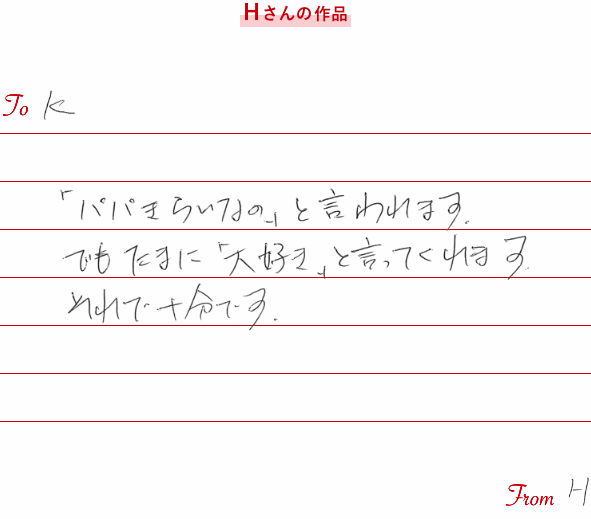 Hさんの作品
To K
「パパきらいなの」と言われます。
でもたまに「大好き」と言ってくれます。
それで十分です。
From H